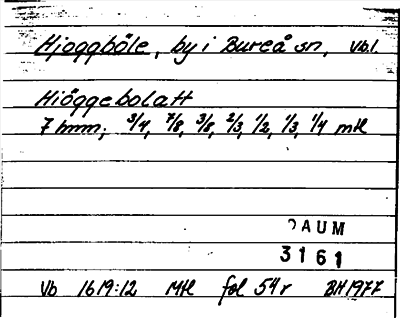 Hjoggböle, by i Bureå sn, Vb.l.
Hiöggebolatt
7 hmm; 3/4, 7/8, 3/8, 2/3, 1/2, 1/3, 1/4 mtl
DAUM
3161
Vb 1619:12 Mtl fol 54r BH1977